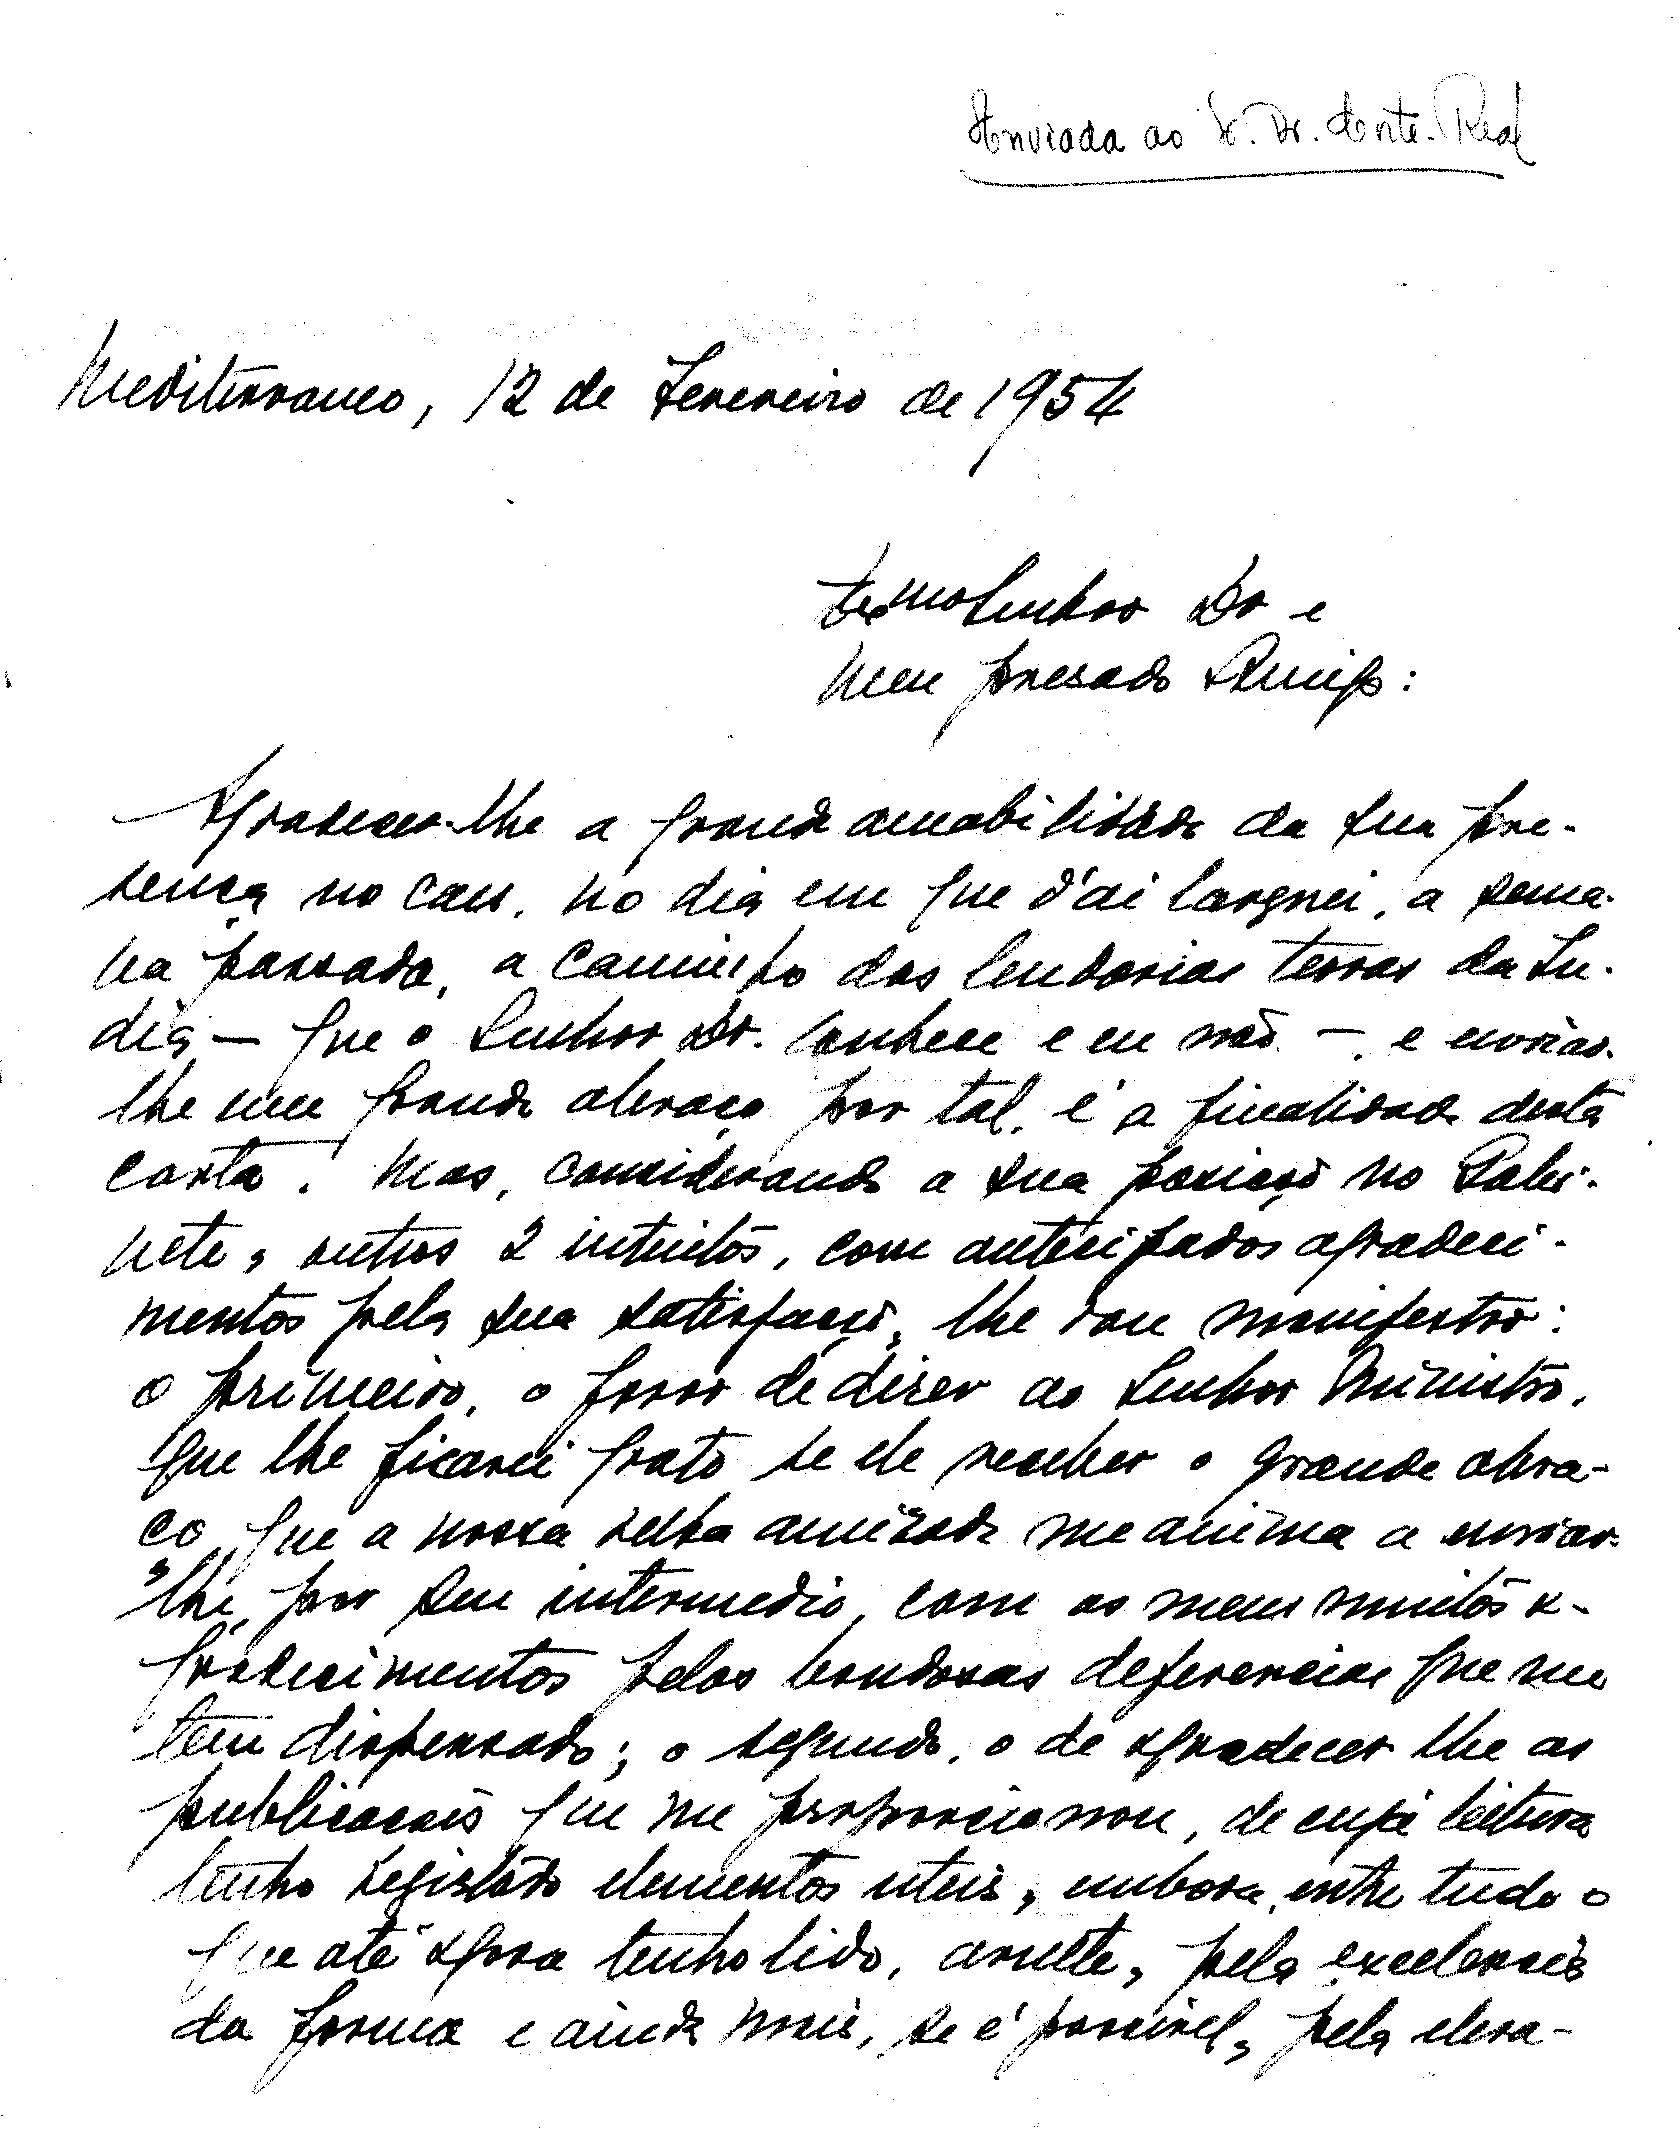 Enviada ao Sr. Dr. Corte-Real
Mediterraneo, 12 de Fevereiro de 1954
Exmo Senhor Dr e
Meu presado Amigo:
Agradecer-lhe a grande amabilidade da sua pre-
sença no caes, no dia em que d'ai larguei, a sema-
na passada, a caminho das lendarias terras da In-
dia - que o Senhor Dr. conhece e eu não -, e enviar-
lhe um grande abraço por tal, é a finalidade desta
carta. Mas, considerando a sua posição no Gabi-
nete, outros 2 intuitos, com antecipados agradeci-
mentos pela sua satisfação, lhe vou manifestar:
o primeiro, o favor de dizer ao Senhor Ministro,
que lhe ficarei grato se ele receber o grande abra-
ço que a nossa velha amizade me anima a enviar-
lhe, por seu intermedio, com os meus muitos a-
gradecimentos pelas bondosas deferencias que me
tem dispensado; o segundo, o de agradecer lhe as
publicações que me proporcionou, de cuja leitura
tenho registado elementos uteis, embora, entre tudo o
que até agora tenho lido, avulte, pela excelencia
da forma e ainda mais, se é possivel, pela eleva-